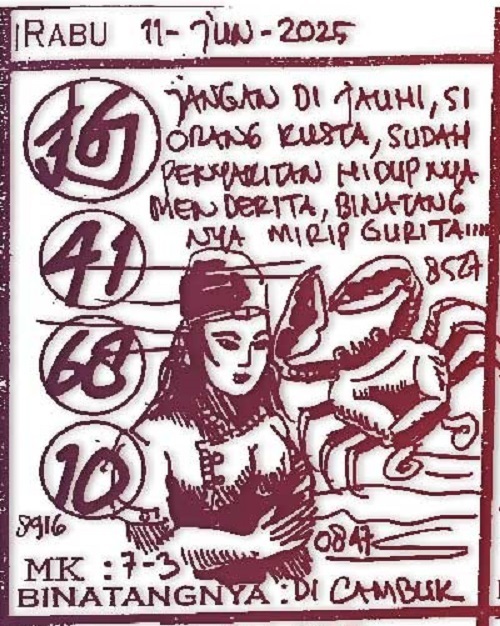 RABU 11-JUN-2025
JANGAN DI JAUHI, SI
ORANG KUSTA, SUDAH
PENYAKITAN HIDUPNYA
MENDERITA, BINATANG
NYA MIRIP GURITA!!!!
8527
41
68
10
8916
0847
MK : 7-3
BINATANGNYA : DI CAMBUK